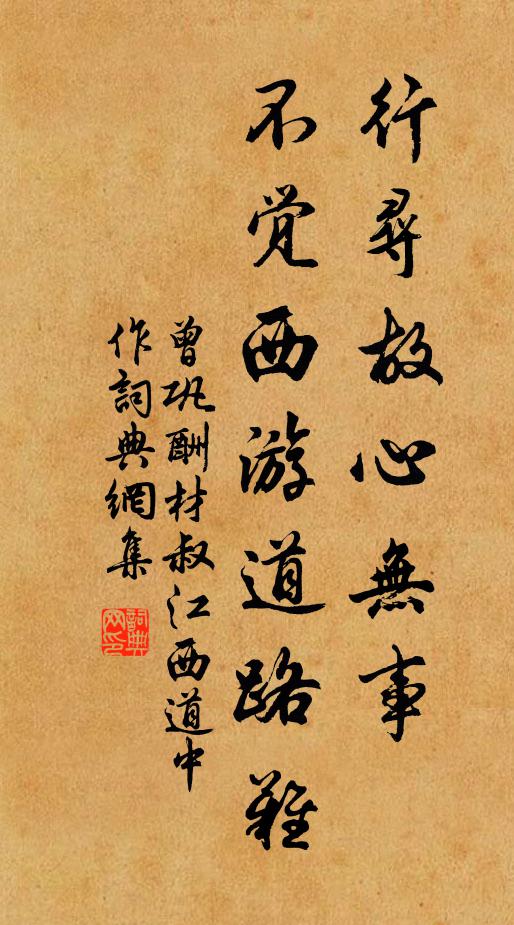 行尋故心無事
不覚西游道路難
曾巩酬材叔江西道中
作詞典網集
詞典
网印